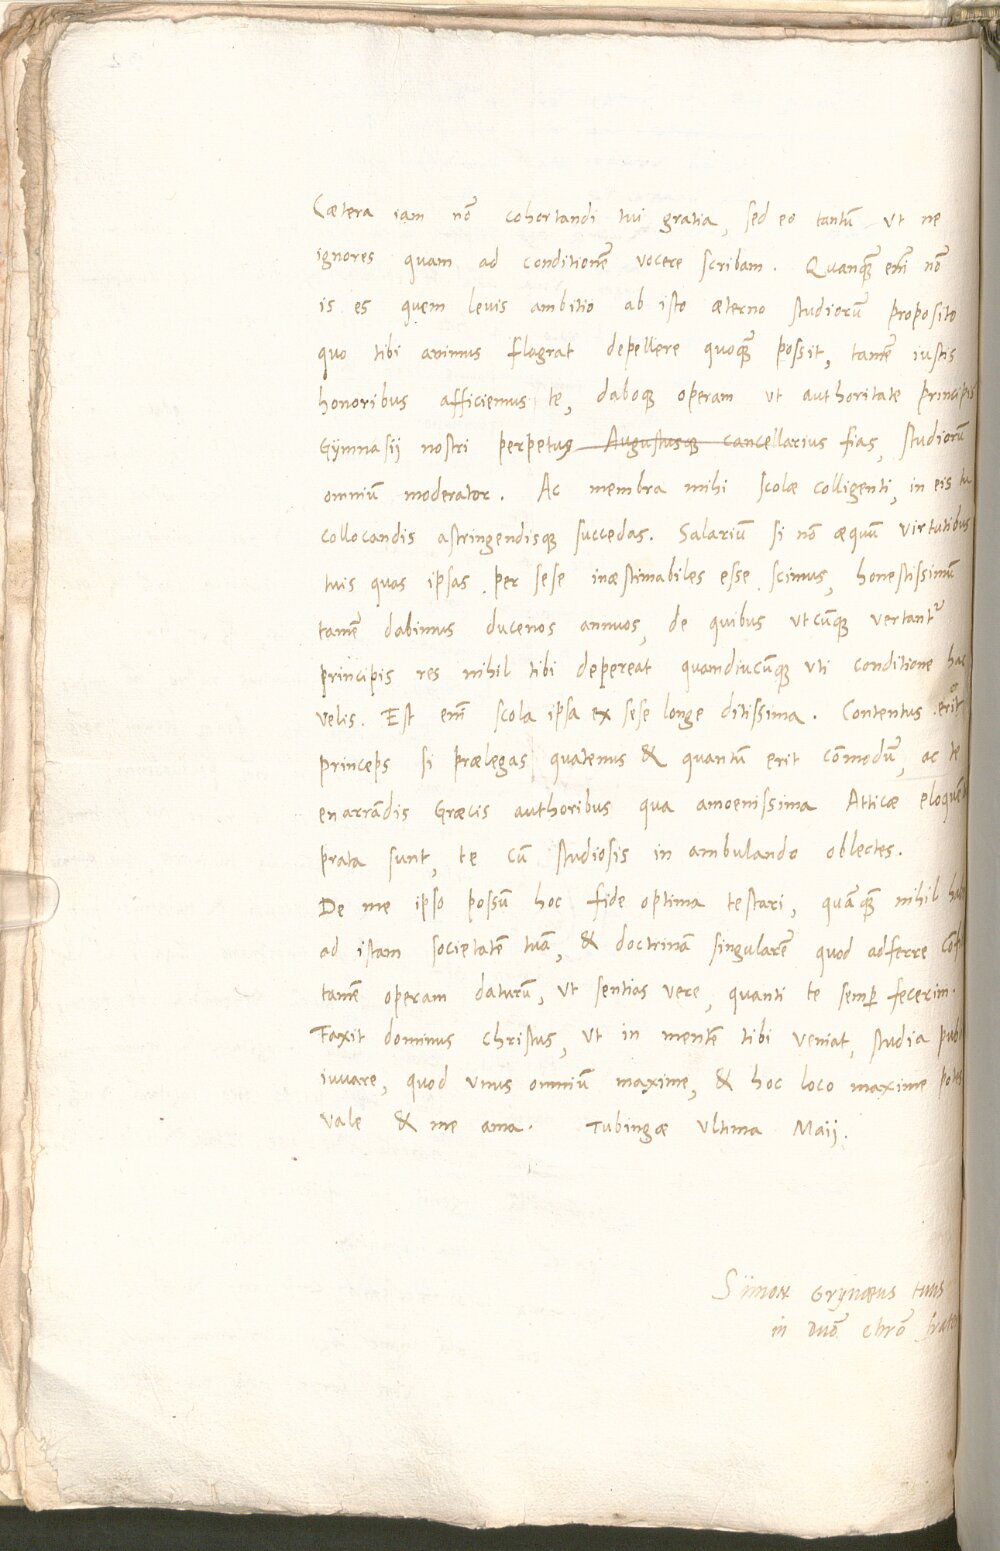 Cætera iam nõ cohortandi tui gratia, sed eo tantũ vt ne
ignores quam ad conditionẽ vocere scribam. Quanquã em̃ nõ
is es quem leuis ambitio ab isto æterno studiorũ proposito
quo tibi animus flagrat depellere quoquã possit, tamẽ iustis
honoribus afficiemus te, daboque operam vt authoritate principis
Gÿmnasij nostri perpetuus Augustusque cancellarius fias, studiorũ
omniũ moderator. Ac membra mihi scolæ colligenti, in eis tu
collocandis astringendisque succedas. Salariũ si nõ æquũ virtutibus
tuis quas ipsas per sese inæstimabiles esse scimus, honestissimũ
tamẽ dabimus ducenos annuos, de quibus vtcũque vertantr
principis res nihil tibi depereat quamdiucũque vti conditione hac
velis. Est em̃ scola ipsa ex sese longe ditissima. Contentus erit
princeps si prælegas quatenus & quantũ erit cõmodũ, ac te
enarrãdis Græcis authoribus qua amoenissima Atticæ
prata sunt, te cũ studiosis in ambulando oblectes.
De me ipso possũ hoc fide optima testari, quãquã nihil
ad istam societatẽ tuã, & doctrinã singularẽ quod adferre
tamẽ operam daturũ, vt sentias vere, quanti te semper fecerim.
Faxit dominus christus, vt in mentẽ tibi veniat, studia
iuuare, quod vnus omniũ maxime, & hoc loco maxime potes
Vale & me ama. Tubingæ vltima Maij.
Sïmon Grÿnæus tuus
in Dnõ chrõ